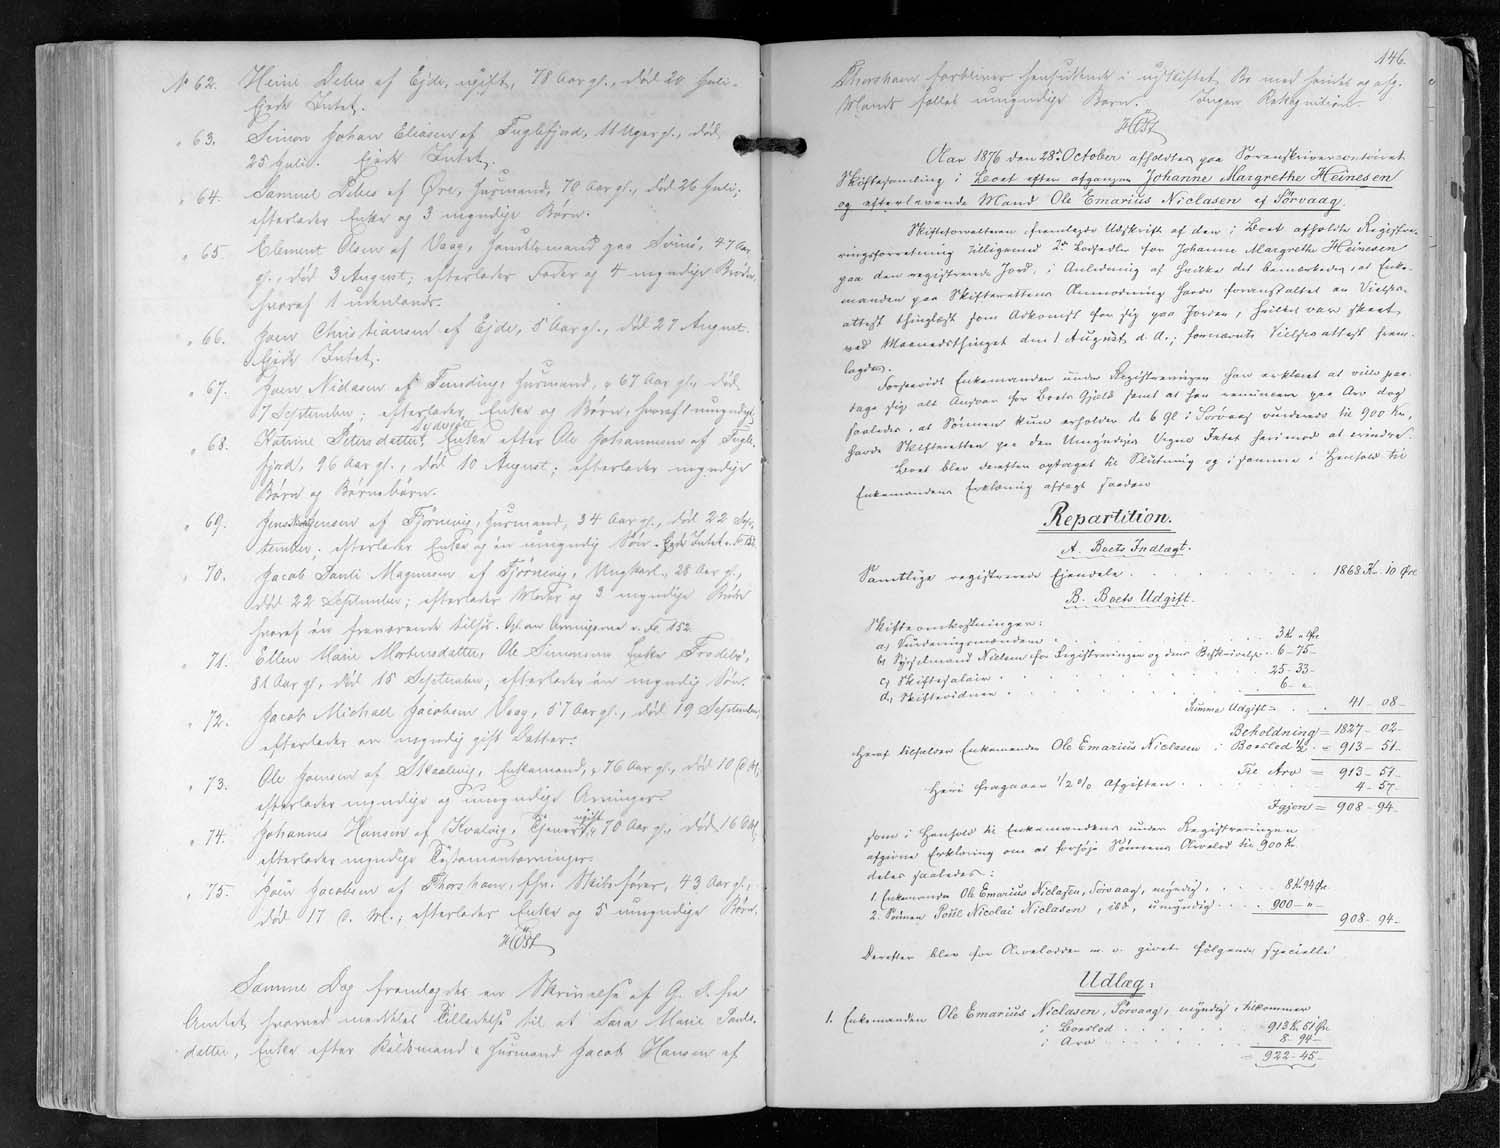 № 62. Heine Debes af Ejde, ugift, 78 Aar gl., død 20 Juli.
Ejede Intet.
" 63. Simon Johan Eliasen af Fuglefjord, 11 Uger gl., død
25 Juli. Ejede Intet.
" 64. Samuel Debes af Øre, Huusmand, 70 Aar gl., død 26 Juli;
efterlader Enke og 3 myndige Børn.
" 65. Clement Olsen af Vaag, Handelsmand paa Svinø, 47 Aar
gl., død 3 August; efterlader Fader og 4 myndige Brødre,
hvoraf 1 udenlands.
" 66. Joen Christiansen af Ejde, 8 Aar gl., død 27 August.
Ejede Intet.
" 67. Joen Niclasen af Funding, Huusmand, 67 Aar gl., død
7 September; efterlader Enke og Børn, hvoraf 1 umyndigt
" 68. Katrine Petersdatter, Enke efter Ole Johannesen af Fugle-
fjord, 96 Aar gl., død 10 August; efterlader myndige
Børn og Børnebørn.
" 69. Jensen af Tjørnevig, Huusmand, 34 Aar gl., død 22 Sep-
tember; efterlader Enke og én umyndig Søn. Ejede Intet v. Fo 152.
" 70. Jacob Pauli Magnusen af Tjørnevig, Ungkarl, 28 Aar gl.,
død 22 September; efterlader Moder og 3 myndige Brødre
hvoraf én fraværende tilsøs. Arvingerne v. Fo. 152.
" 71. Ellen Marie Mortensdatter, Ole Simonsens Enke Frodebø,
81 Aar gl., død 15 September; efterlader én myndig Søn.
" 72. Jacob Michael Jacobsen Vaag, 57 Aar gl., død 19 September,
efterlader en myndig gift Datter.
" 73. Ole Joensen af Skaalevig, Enkemand, 76 Aar gl., død 10 Oct;
efterlader myndige og umyndige Arvinger.
" 74. Johannes Hansen af Kvalvig, Tjener, ugift 70 Aar gl., død 16 Oct,
efterlader myndige Testamentarvinger.
" 75. Joen Jacobsen af Thorshavn, fhv. Skibsfører, 43 Aar gl.,
død 17 d. M.; efterlader Enke og 5 umyndige Børn.
HØst
Samme Dag fremlagdes en Skrivelse af G. D. fra
Amtet hvorved meddeles Tilladelse til at Sara Marie Pouls-
datter, Enke efter Huusmand Jacob Hansen af
146.
Thorshavn forbliver hensiddende i uskiftet Bo med hendes og afg.
Mands fælles umyndige Børn. Ingen Rekognition.
HØst
Aar 1876 den 28de October afholdtes paa Sorenskrivercontoiret
Skiftesamling i Boet efter afgangne Johanne Margrethe Heinesen
og efterlevende Mand Ole Emarius Niclasen af Sørvaag.
Skifteforvalteren fremlagde Udskrift af den i Boet afholdte Registre-
ringsforretning tilligemed 2de Lodsedler for Johanne Margrethe Heinesen
paa den registrerede Jord, i Anledning af hvilke det bemærkedes, at Enke-
manden paa Skifterettens Anmodning havde foranstaltet en Vielses-
attest thinglæst som Adkomst for sig paa Jorden, hvilket var skeet
ved Maanedsthinget den 1 August d. A.; fornævnte Vielsesattest frem-
lagdes.
Forsaavidt Enkemanden under Registreringen har erklæret at ville paa-
tage sig alt Ansvar for Boets Gjæld samt at han renuncerer paa Arv dog
saaledes, at Sønnen kun erholder de 6 Gl i Sørvaag vurderede til 900 Kr.,
havde Skifteretten paa den Umyndiges Vegne Intet herimod at erindre.
Boet blev derefter optaget til Slutning og i samme i Henhold til
Enkemandens Erklæring afsagt saadan
Repartition.
A. Boets Indtægt.
Samtlige registrerede Ejendele . . . 1868 Kr. 10 Øre
B. Boets Udgift.
Skifteomkostninger:
a, Vurderingsmændene . . . 3 K " Øre
b, Sysselmand Nielsen for Registreringen og dens Beskrivelse . 6 - 75 -
c, Skiftesalair . . . 25 - 33 -
d, Skiftevidner . . . 6 - "
Summa Udgift = . . 41 - 08 -
Beholdning = 1827 - 02 -
Heraf tilfalder Enkemanden Ole Emarius Niclasen i Boeslod ½ . = 913 - 51 -
Til Arv = 913 - 51 -
Heri fragaaer ½ % Afgiften . . . 4 - 57 -
Igjen = 908 - 94 -
som i Henhold til Enkemandens under Registreringen
afgivne Erklæring om at forhøje Sønnens Arvelod til 900 Kr.
deles saaledes:
1. Enkemanden Ole Emarius Niclasen, Sørvaag, myndig, . . . 8 K. 94 Øre
2. Sønnen Poul Nicolai Niclasen, ibd., umyndig . . . 900 - "
908 - 94 -
Derefter blev for Arvelodden m. v. givet følgende specielle
Udlæg:
1. Enkemanden Ole Emarius Niclasen, Sørvaag, myndig, tilkommer
i Boeslod . . . 913 K. 51 Øre
i Arv . . . 8 - 94 -
= 922 - 45 -